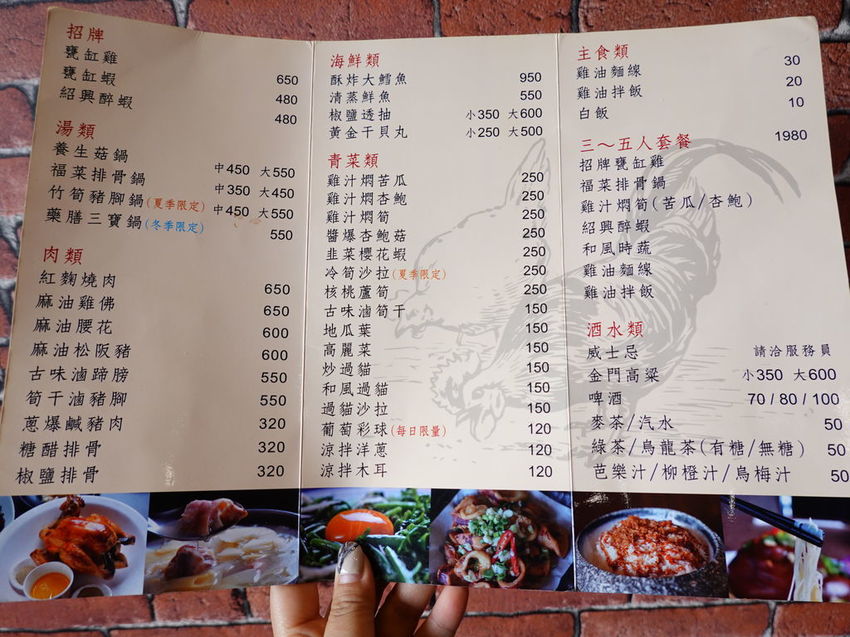 招牌
甕缸雞 650
甕缸蝦 480
紹興醉蝦 480
湯類
養生菇鍋 中450 大550
福菜排骨鍋 中350 大450
竹筍豬腳鍋(夏季限定) 中450 大550
藥膳三寶鍋(冬季限定) 550
肉類
紅麴燒肉 650
麻油雞佛 650
麻油腰花 600
麻油松阪豬 600
古味滷蹄膀 550
筍干滷豬腳 550
蔥爆鹹豬肉 320
糖醋排骨 320
椒鹽排骨 320
海鮮類
酥炸大鱈魚 950
清蒸鮮魚 550
椒鹽透抽 小350 大600
黃金干貝丸 小250 大500
青菜類
雞汁燜苦瓜 250
雞汁燜杏鮑 250
雞汁燜筍 250
醬爆杏鮑菇 250
韭菜櫻花蝦 250
冷筍沙拉(夏季限定) 250
核桃蘆筍 250
古味滷筍干 150
地瓜葉 150
高麗菜 150
炒過貓 150
和風過貓 150
過貓沙拉 150
葡萄彩球(每日限量) 120
涼拌洋蔥 120
涼拌木耳 120
主食類
雞油麵線 30
雞油拌飯 20
白飯 10
三～五人套餐 1980
招牌甕缸雞
福菜排骨鍋
雞汁燜筍(苦瓜/杏鮑)
紹興醉蝦
和風時蔬
雞油麵線
雞油拌飯
酒水類
威士忌 請洽服務員
金門高粱 小350 大600
啤酒 70/80/100
麥茶/汽水 50
綠茶/烏龍茶(有糖/無糖) 50
芭樂汁/柳橙汁/烏梅汁 50